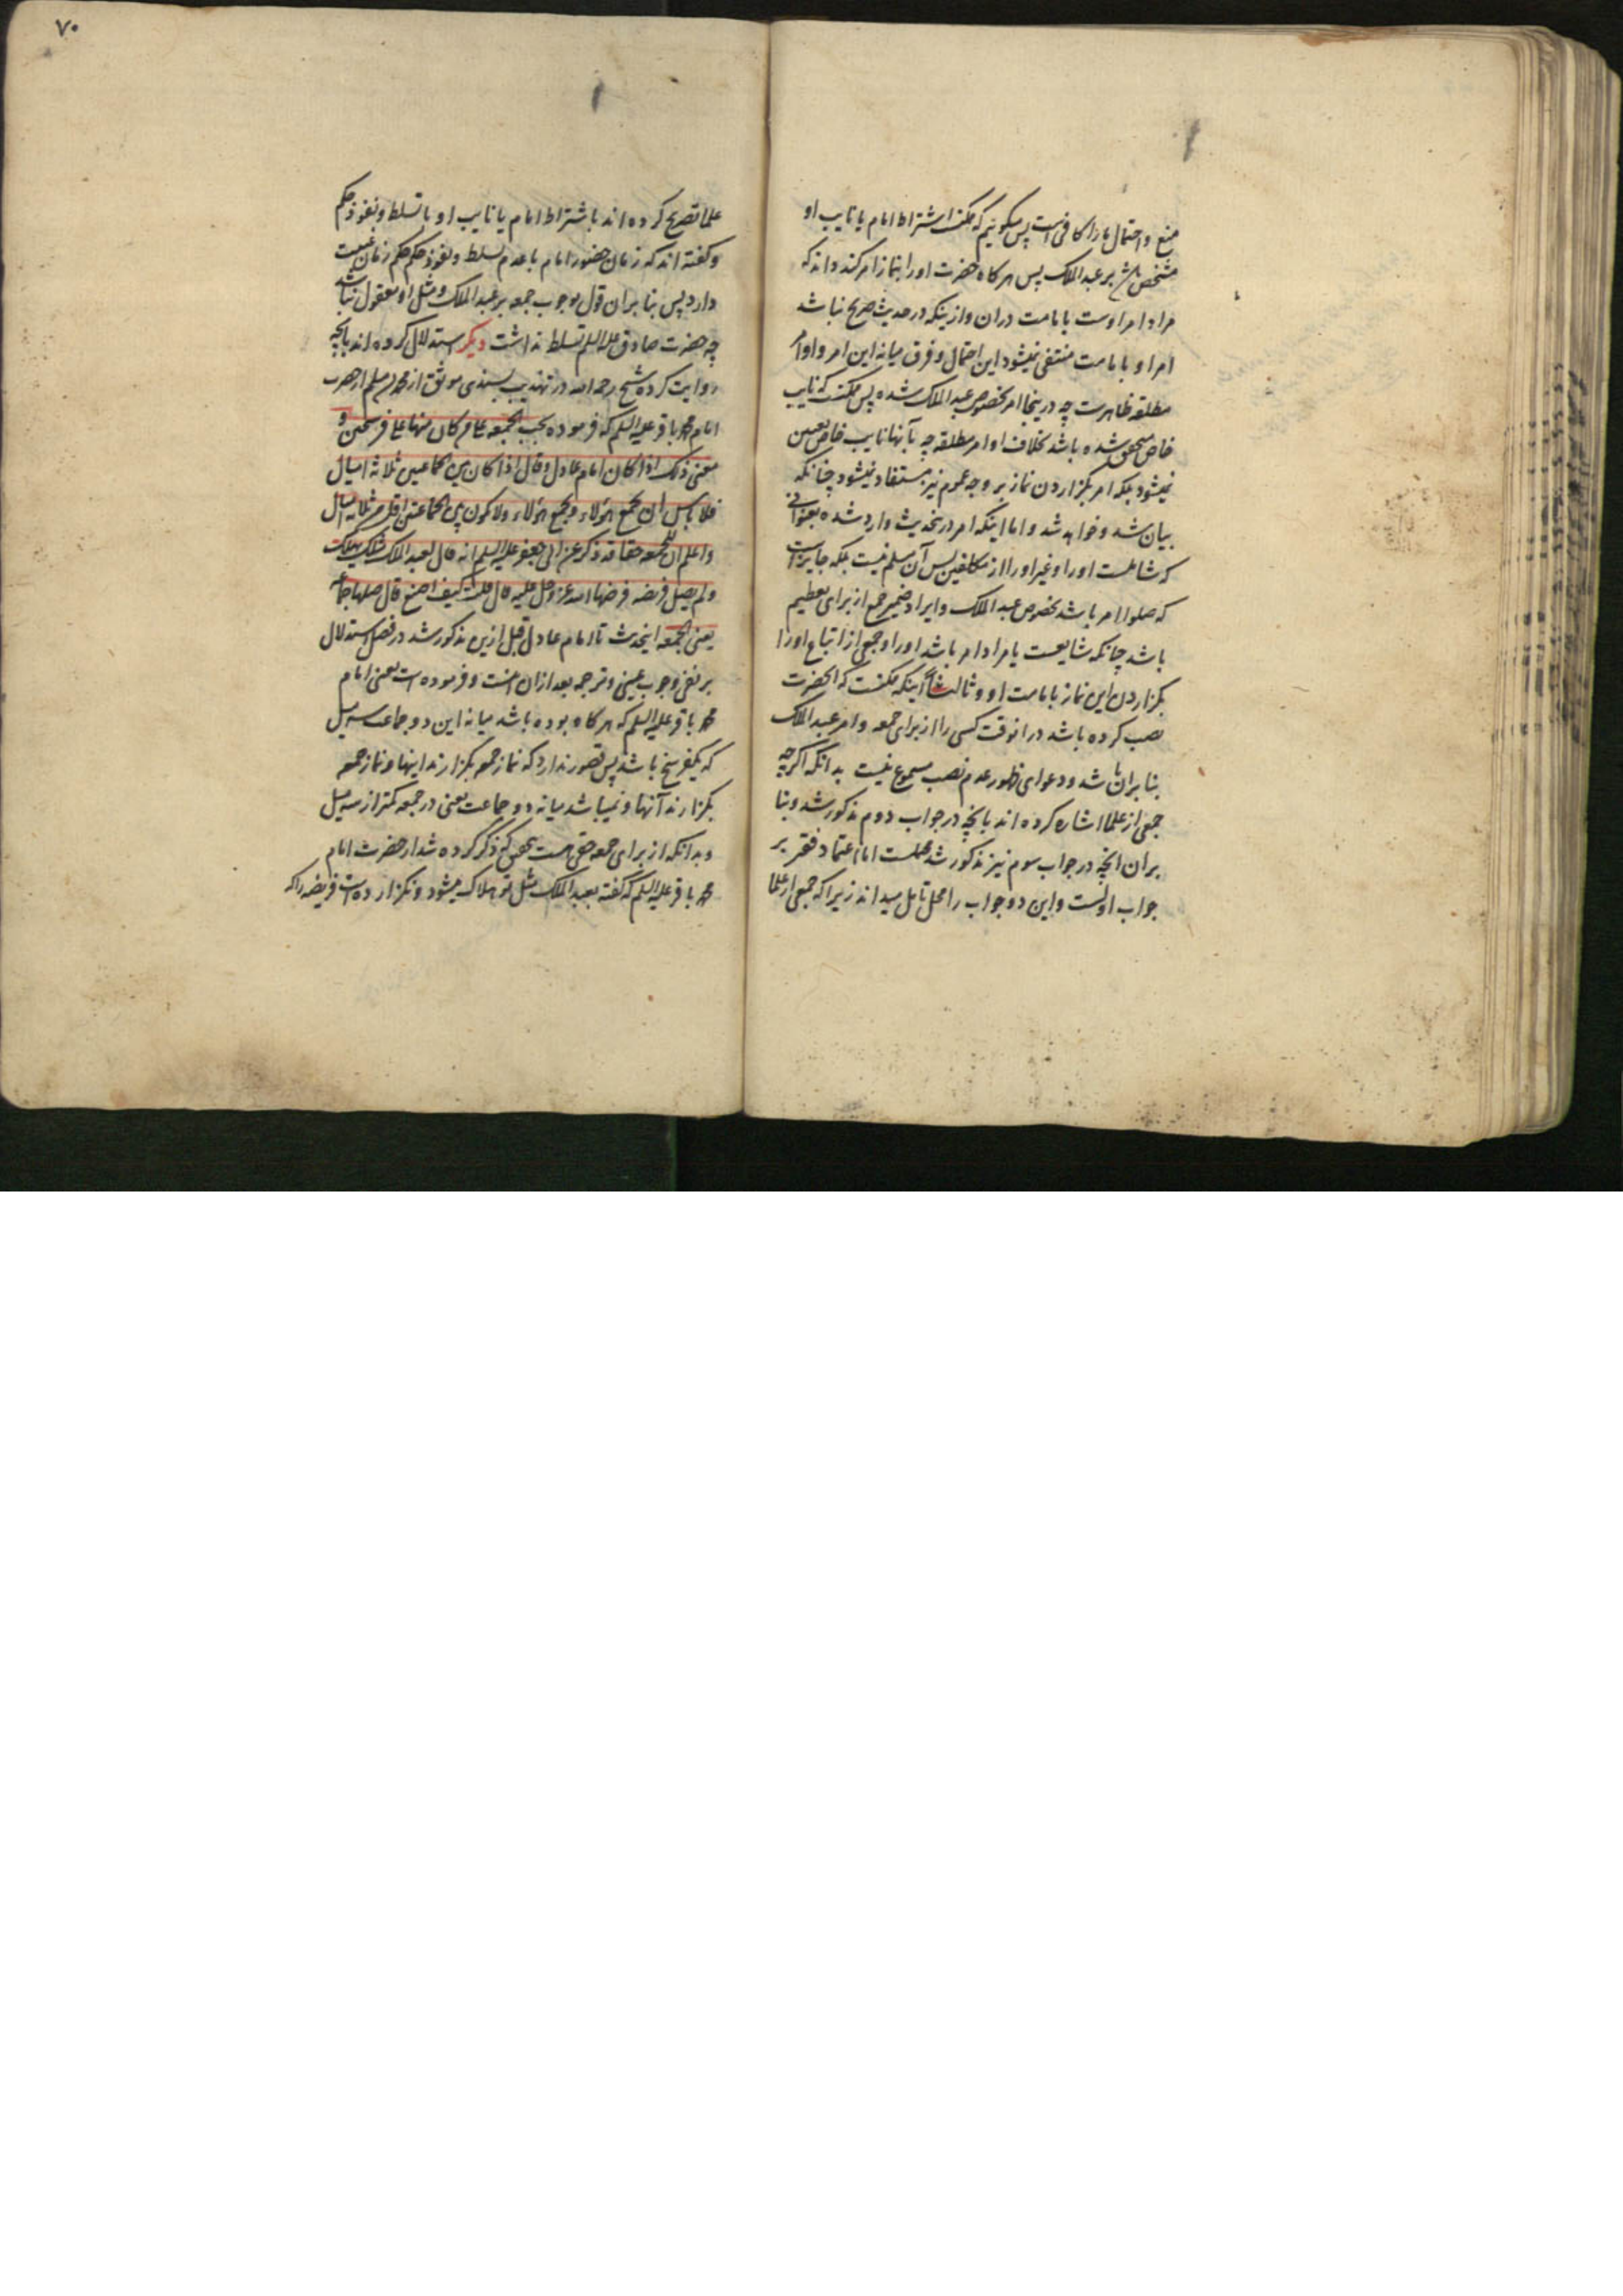 منع و احتمال ما را کافی است پس میکوییم که ممکنست اشتراط امام یا نایب او
مشخص باشد بر عبد الملک پس هر کاه حضرت او را بنماز امر کند داند که
مراد امر اوست بامامت دران و ازینکه در حدیث صریح نباشد
امر او بامامت منتفی نمیشود این احتمال و فرق میانه این امر و اوامر
مطلقه ظاهرست چه درینجا امر بخصوص عبد الملک شده پس ممکنست که نایب
خاص متحقق شده باشد بخلاف اوامر مطلقه چه بآنها نایب خاص تعیین
نمیشود بلکه امر بکزاردن نماز بر وجه عموم نیز مستفاد نمیشود چنانکه
بیان شد و خواهد شد و اما اینکه امر درینحدیث وارد شده بعنوانی
که شاملست او را و غیر او را از مکلفین پس آن مسلم نیست بلکه جایز است
که صلوا امر باشد بخصوص عبد الملک و ایراد ضمیر جمع از برای تعظیم
باشد چنانکه شایعست یا مراد امر باشد او را و جمعی از اتباع او را
بکزاردن این نماز بامامت او و ثالثا اینکه ممکنست که انحضرت
نصب کرده باشد در انوقت کسی را از برای جمعه و امر عبد الملک
بنا بران باشد و دعوای ظهور عدم نصب مسموع نیست بدانکه اکرچه
جمعی از علما اشاره کرده اند بانچه در جواب دوم مذکور شد و بنا
بران انچه در جواب سوم نیز مذکور شد محلست اما اعتماد فقیر بر
جواب اولست و این دو جواب را محل تامل میداند زیرا که جمعی از علما
۷۰
علما تصریح کرده اند باشتراط امام یا نایب او با تسلط و نفوذ حکم
و کفته اند که زمان حضور امام با عدم تسلط و نفوذ حکم حکم زمان غیبت
دارد پس بنا بران قول بوجوب جمعه بر عبد الملک و مثل او معقول نباشد
چه حضرت صادق علیه السلم تسلط نداشت دیکر استدلال کرده اند بانچه
روایت کرده شیخ رحمه الله در تهذیب بسندی موثق از محمد بن مسلم از حضرت
امام محمد باقر علیه السلم که فرموده تجب الجمعه علی من کان منها علی فرسخین و
معنی ذلک اذا کان امام عادل و قال اذا کان بین الجماعتین ثلاثة امیال
فلا باس ان یجمع هؤلاء و یجمع هؤلاء و لا یکون بین الجماعتین اقل من ثلاثة امیال
و اعلم ان للجمعه حقا قد ذکر عن ابی جعفر علیه السلم انه قال لعبد الملک مثلک یهلک
و لم یصل فریضه فرضها الله عز و جل علیه قال قلت کیف اصنع قال صلها جماعة
یعنی الجمعه اینحدیث تا امام عادل قبل ازین مذکور شد در فصل استدلال
بر نفی وجوب عینی و ترجمه بعد ازان اینست و فرموده است یعنی امام
محمد باقر علیه السلم که هر کاه بوده باشد میانه این دو جماعت سه میل
که یکفرسخ باشد پس قصور ندارد که نماز جمعه بکزارند اینها و نماز جمعه
بکزارند آنها و نمیباشد میانه دو جماعت یعنی در جمعه کمتر از سه میل
و بدانکه از برای جمعه حقی هست بتحقیق که ذکر کرده شد از حضرت امام
محمد باقر علیه السلم که کفته بعبد الملک مثل تو هلاک میشود و نکزارده است فریضه را که